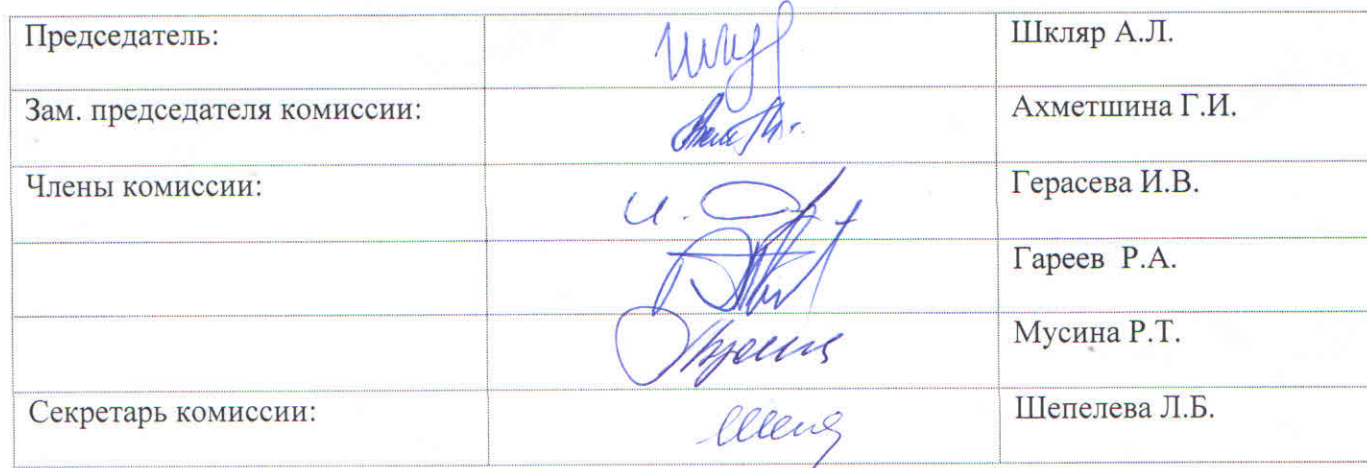 Председатель: Шкляр А.Л.
Зам. председателя комиссии: Ахметшина Г.И.
Члены комиссии: Герасева И.В.
Гареев Р.А.
Мусина Р.Т.
Секретарь комиссии: Шепелева Л.Б.